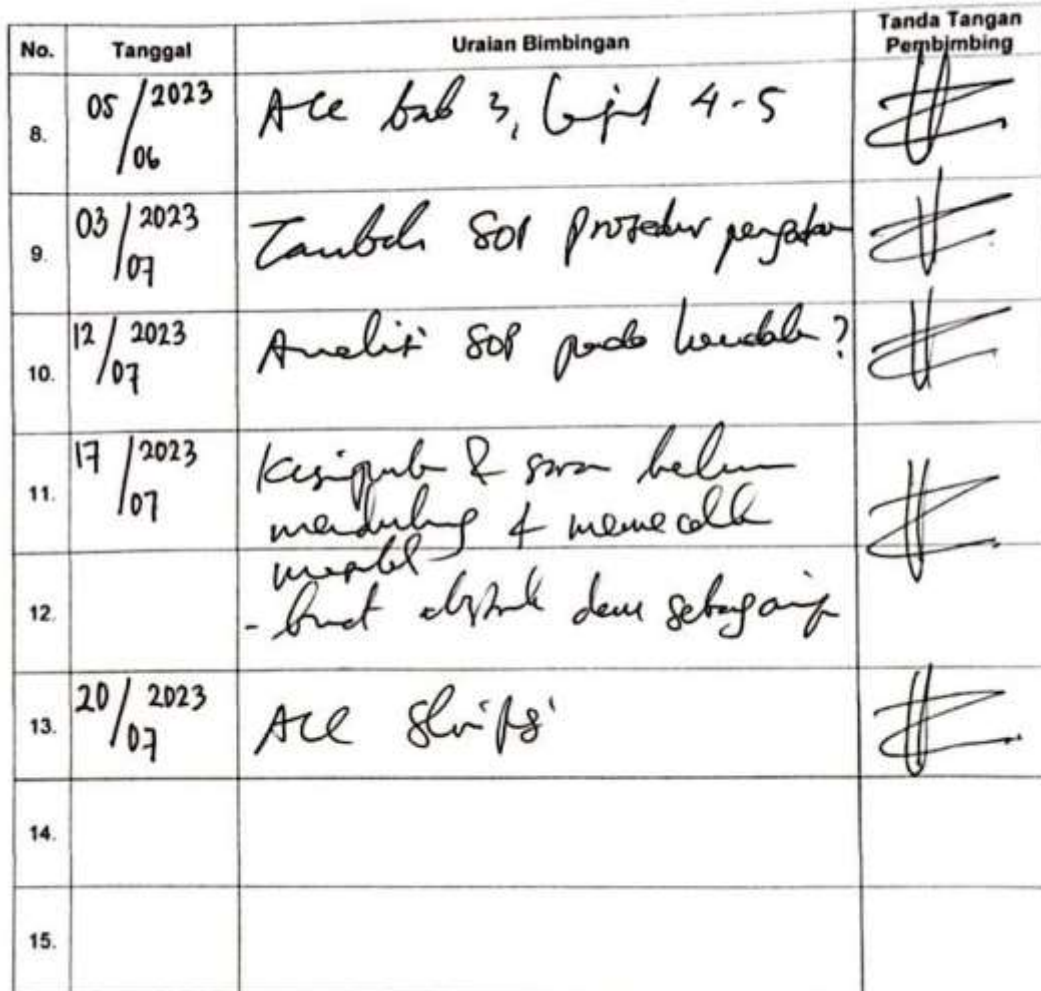 No. Tanggal Uraian Bimbingan Tanda Tangan Pembimbing
8. 05/06 2023 Acc bab 3, lanjut 4-5
9. 03/07 2023 Tambah SOP prosedur
10. 12/07 2023 Analisis SOP pada kendala?
11. 17/07 2023 Kesimpulan & saran belum
mendukung & memecahkan
12.
- buat abstrak dan sebagainya
13. 20/07 2023 Acc Skripsi
14.
15.